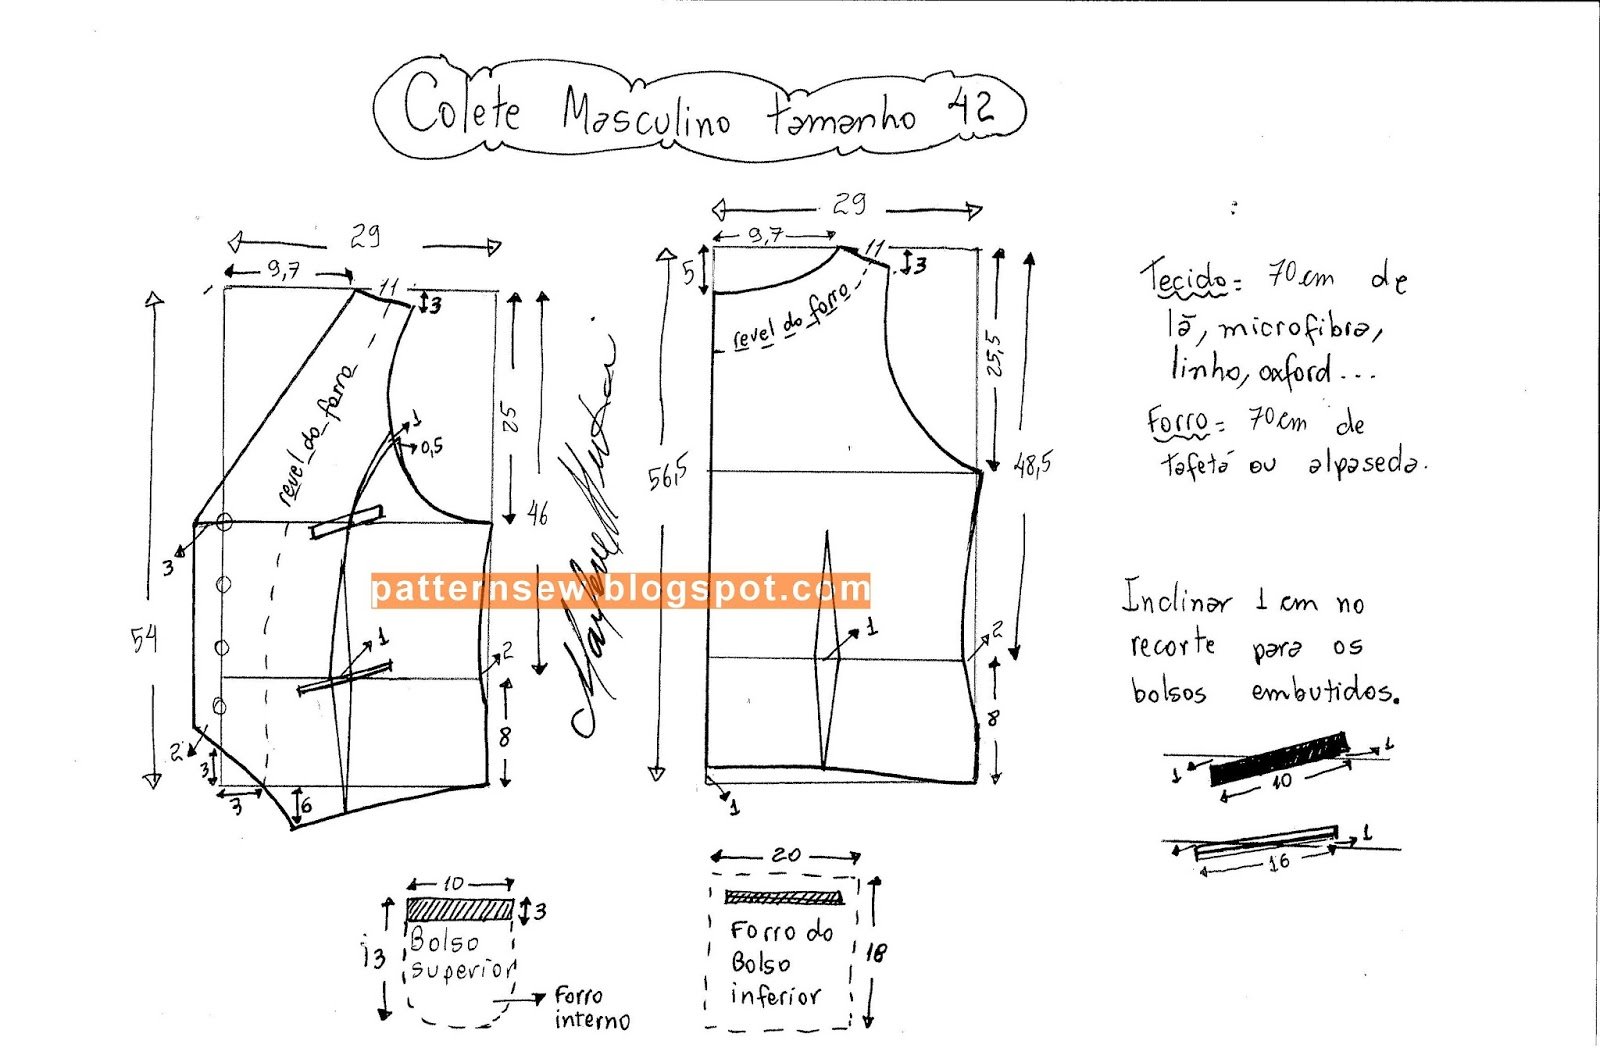 Colete Masculino tamanho 42
29
9,7
11
3
revel do forro
25
46
1
0,5
3
54
1
2
8
2
3
3
6
patternsew.blogspot.com
29
9,7
11
3
5
revel do forro
25,5
48,5
56,5
1
2
8
1
Tecido = 70cm de
lã, microfibra,
linho, oxford...
Forro = 70cm de
tafetá ou alpaseda.
Inclinar 1 cm no
recorte para os
bolsos embutidos.
1
1
10
1
16
10
3
13
Bolso
superior
Forro
interno
20
18
Forro do
Bolso
inferior